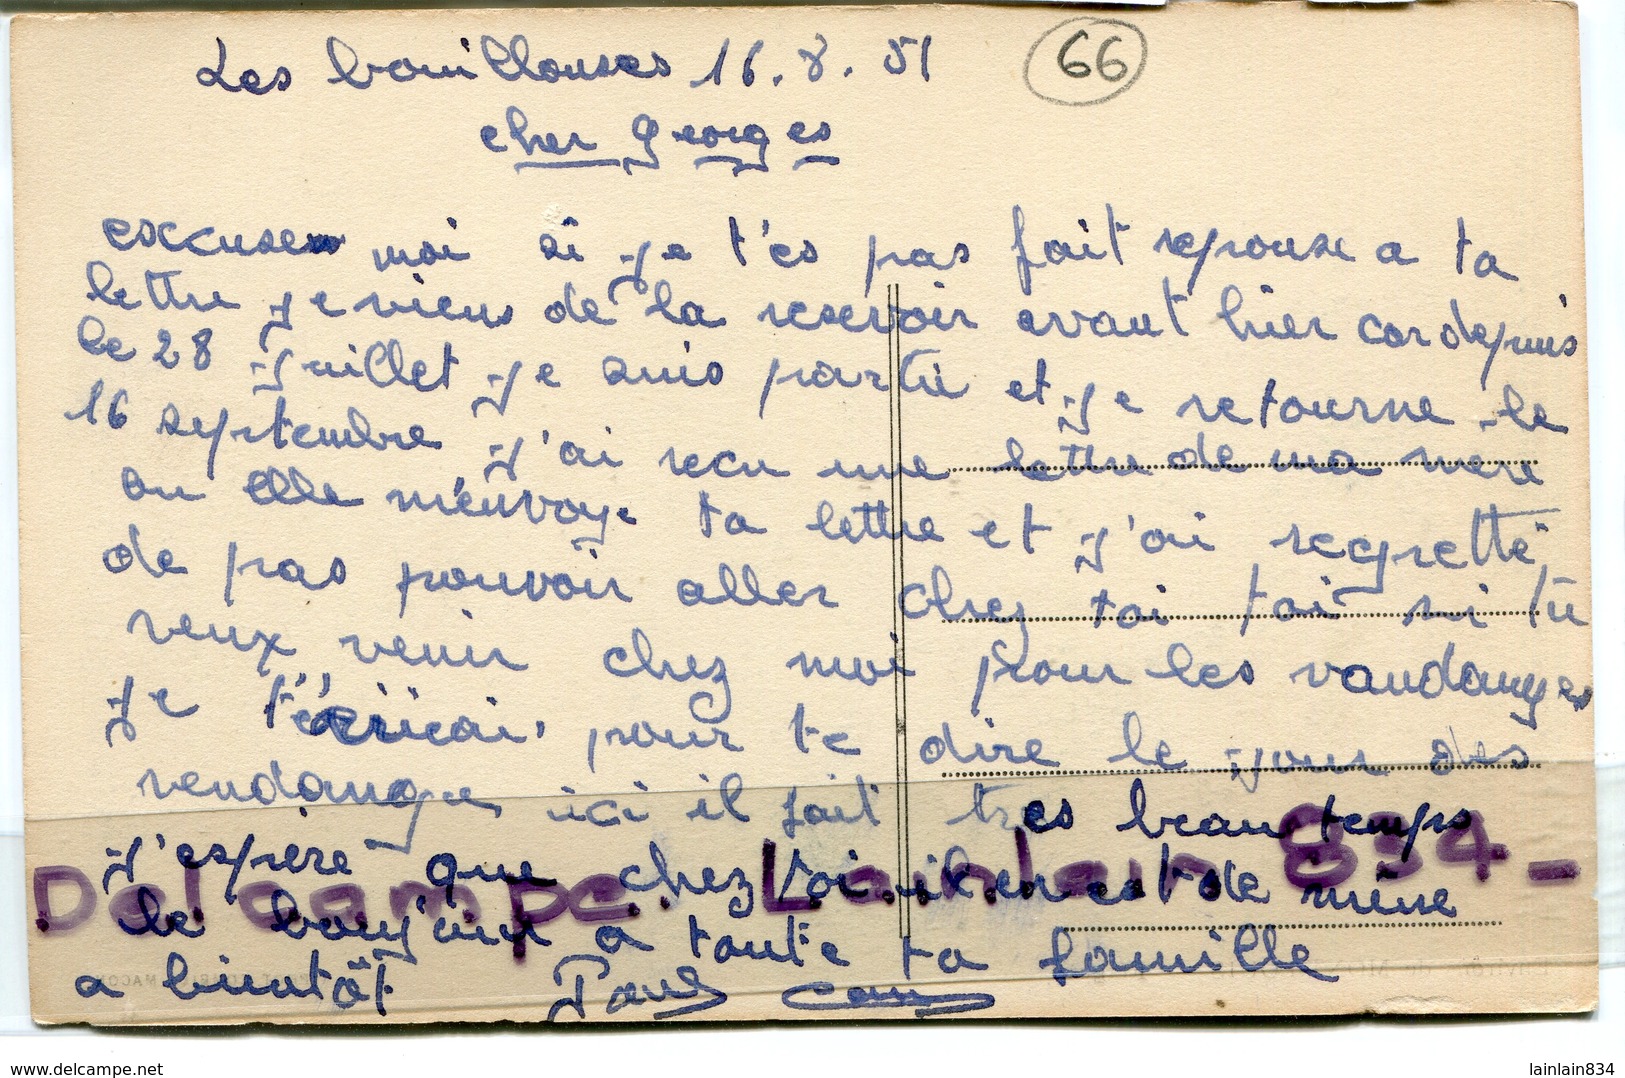 Les bouillouses 16.8.51
66
cher georges
excuses moi si je t'es pas fait reponse a ta
lettre je viens de la reservoir avant hier car depuis
le 28 juillet je suis partie et je retourne le
16 septembre j'ai recu une lettre de ma mere
ou elle m'envoye ta lettre et j'ai regretté
de pas pouvoir aller chez toi toi si tu
veux venir chez moi pour les vandanges
je t'écrirai pour te dire le jour des
vendanges ici il fait tres beau temps
j'espère que chez toi il en est de mème
le bonjour a toute ta famille
a bientôt Paul
Delcampe. Lainlain 834_
www.delcampe.net
lainlain834